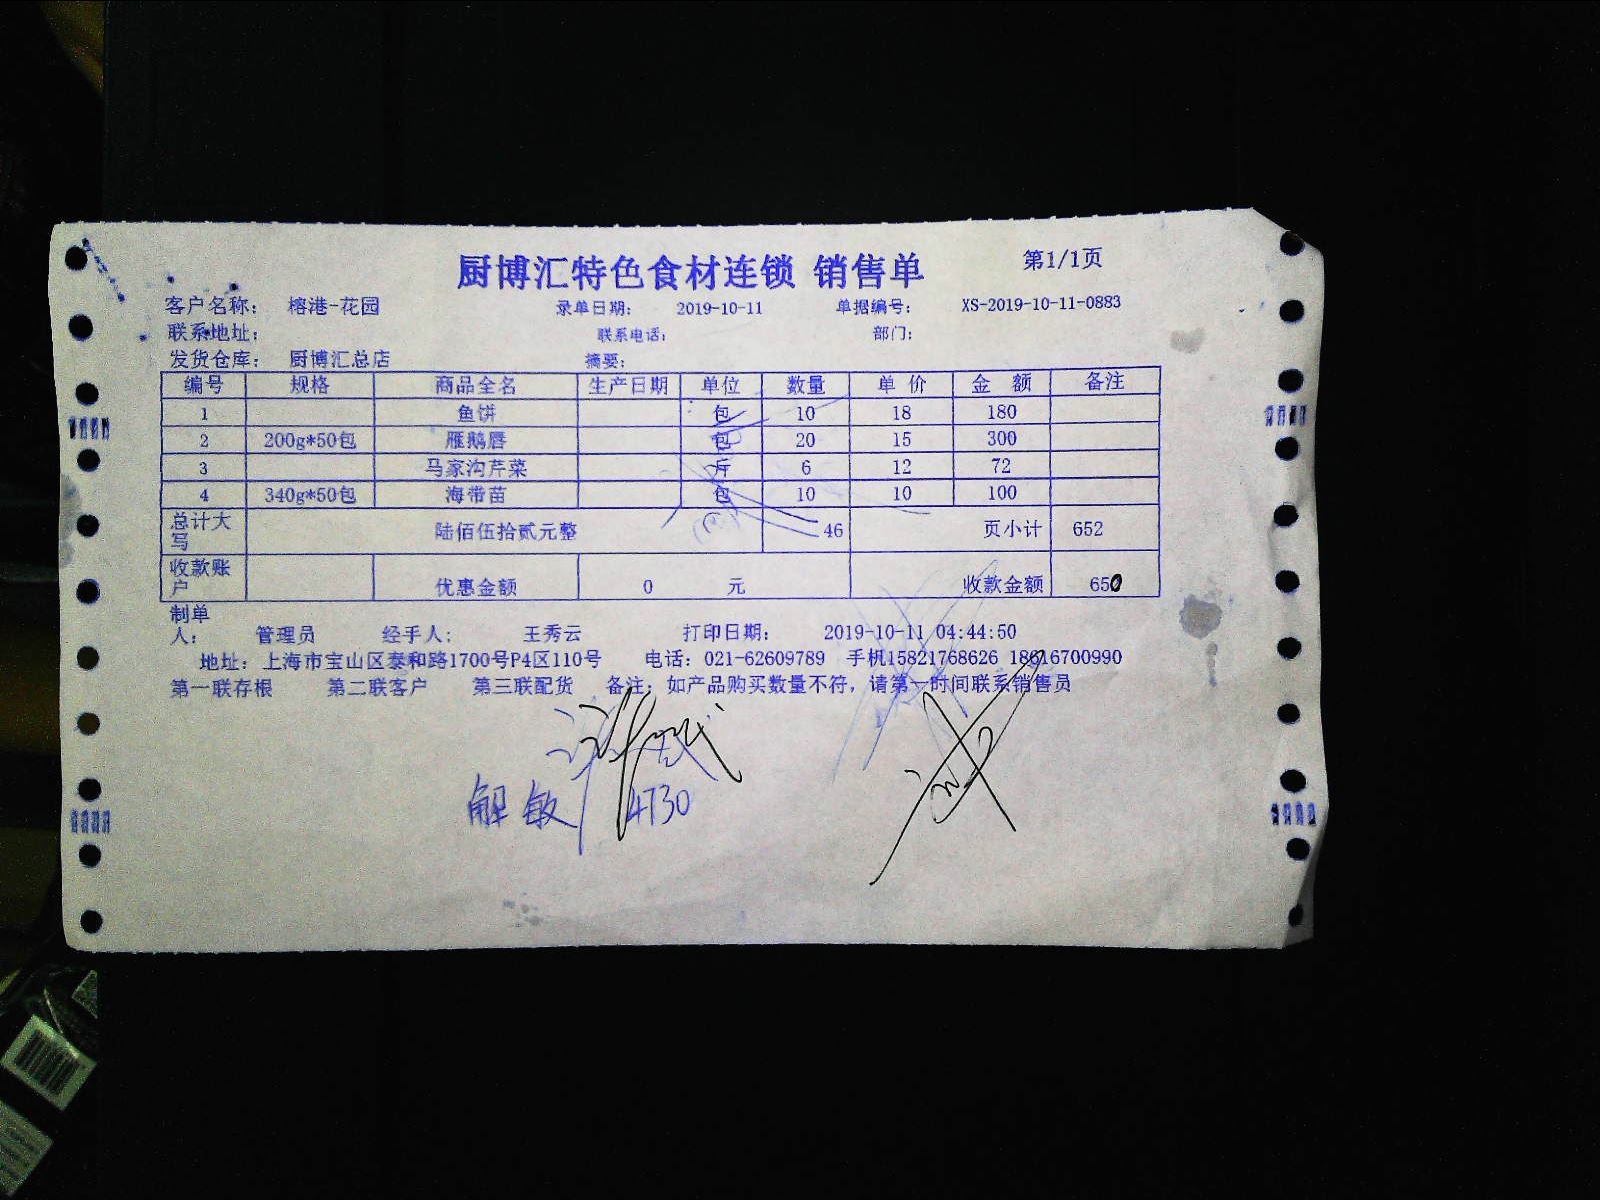 厨博汇特色食材连锁 销售单 第1/1页
客户名称: 榕港-花园 录单日期: 2019-10-11 单据编号: XS-2019-10-11-0883
联系地址: 联系电话: 部门:
发货仓库: 厨博汇总店 摘要:
编号 规格 商品全名 生产日期 单位 数量 单价 金额 备注
1 鱼饼 包 10 18 180
2 200g*50包 雁鹅唇 包 20 15 300
3 马家沟芹菜 斤 6 12 72
4 340g*50包 海带苗 包 10 10 100
总计大写 陆佰伍拾贰元整 46 页小计 652
收款账户 优惠金额 0 元 收款金额 650
制单人: 管理员 经手人: 王秀云 打印日期: 2019-10-11 04:44:50
地址: 上海市宝山区泰和路1700号P4区110号 电话: 021-62609789 手机15821768626 18616700990
第一联存根 第二联客户 第三联配货 备注: 如产品购买数量不符,请第一时间联系销售员
解敏 4730